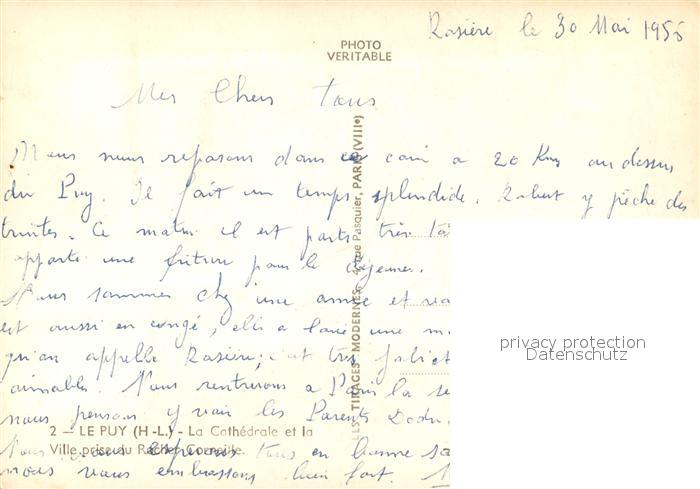 Rasière le 30 Mai 1955
PHOTO
VERITABLE
Mes Chers tous
Nous nous reposons dans ce coin a 20 Km au dessus
du Puy. Il fait un temps splendide. Robert y pêche des
truites. Ce matin il est parti très
apporte une friture pour le déjeuner.
Nous sommes chez une amie et
est aussi en congé, elle a loué une
qu'on appelle Rasière, c'est très
aimables. Nous rentrerons a Paris la
nous pensons y voir les Parents
2 - LE PUY (H.-L.) - La Cathédrale et la
Ville prise du Rocher Corneille.
Nous vous espérons tous en bonne
nous vous embrassons bien fort.
LES TIRAGES MODERNES, rue Pasquier, PARIS (VIIIe)
privacy protection
Datenschutz